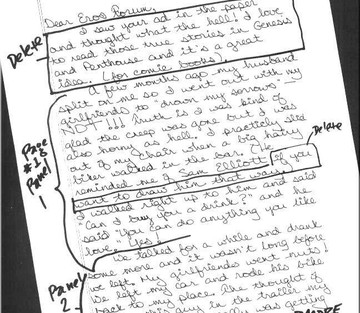 Dear Eros Forum,
I saw your ad in the paper
Delete
and thought what the hell! I love
to read those true stories in Genesis
and Penthouse and it's a great
idea. (for comic books).
A few months ago my husband
split on me so I went out with my
girlfriends to "drown my sorrows" -
NOT!!! Truth is I was kind of
glad the creep was gone but I was
also horny as hell. I practicly slid
Page
#1
Panel
1
out of my chair when a big hairy
Delete
biker walked in the bar. (he
reminded me of Sam Elliott if you
want to draw him that way.)
I walked right up to them and said
"Can I buy you a drink?" and he
said "You can do anything you like
love." Yes!
We talked for a while and drank
some more and it wasn't long before
we left. My girlfriends went nuts!
Panel
2
We left my car and rode his bike
back to my place. The thought of
this guy in the trailer my
was getting